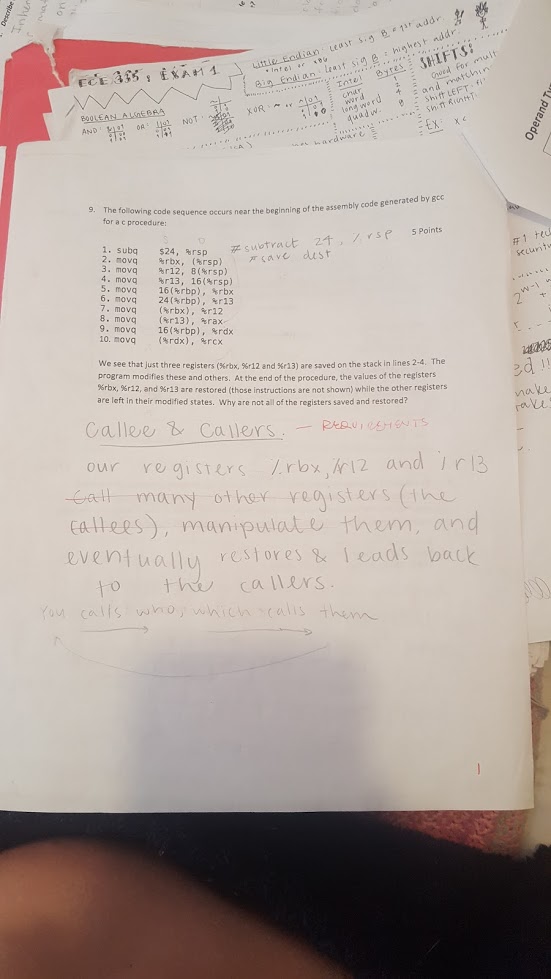 Describe
ECE 355 : EXAM 1
Little Endian : Least sig B = 1st addr.
Intel or x86
Big Endian : least sig B : highest addr.
BOOLEAN ALGEBRA
AND OR NOT XOR
Intel Bytes
char 1
word 2
longword 4
quadw. 8
SHIFTS:
Used for mult
and matchin
Shift LEFT
Shift RIGHT
Ex
hardware
Operand Ty
9. The following code sequence occurs near the beginning of the assembly code generated by gcc
for a c procedure:
5 Points
1. subq $24, %rsp #subtract 24, %rsp
2. movq %rbx, (%rsp) #save dest
3. movq %r12, 8(%rsp)
4. movq %r13, 16(%rsp)
5. movq 16(%rbp), %rbx
6. movq 24(%rbp), %r13
7. movq (%rbx), %r12
8. movq (%r13), %rax
9. movq 16(%rbp), %rdx
10. movq (%rdx), %rcx
We see that just three registers (%rbx, %r12 and %r13) are saved on the stack in lines 2-4. The
program modifies these and others. At the end of the procedure, the values of the registers
%rbx, %r12, and %r13 are restored (those instructions are not shown) while the other registers
are left in their modified states. Why are not all of the registers saved and restored?
Callee & Callers. — REQUIREMENTS
our registers %rbx, %r12 and %r13
call many other registers (the
callees), manipulate them, and
eventually restores & leads back
to the callers.
You calls who, which calls them
1
#1
securit
2^w-1
ed !!
make
take